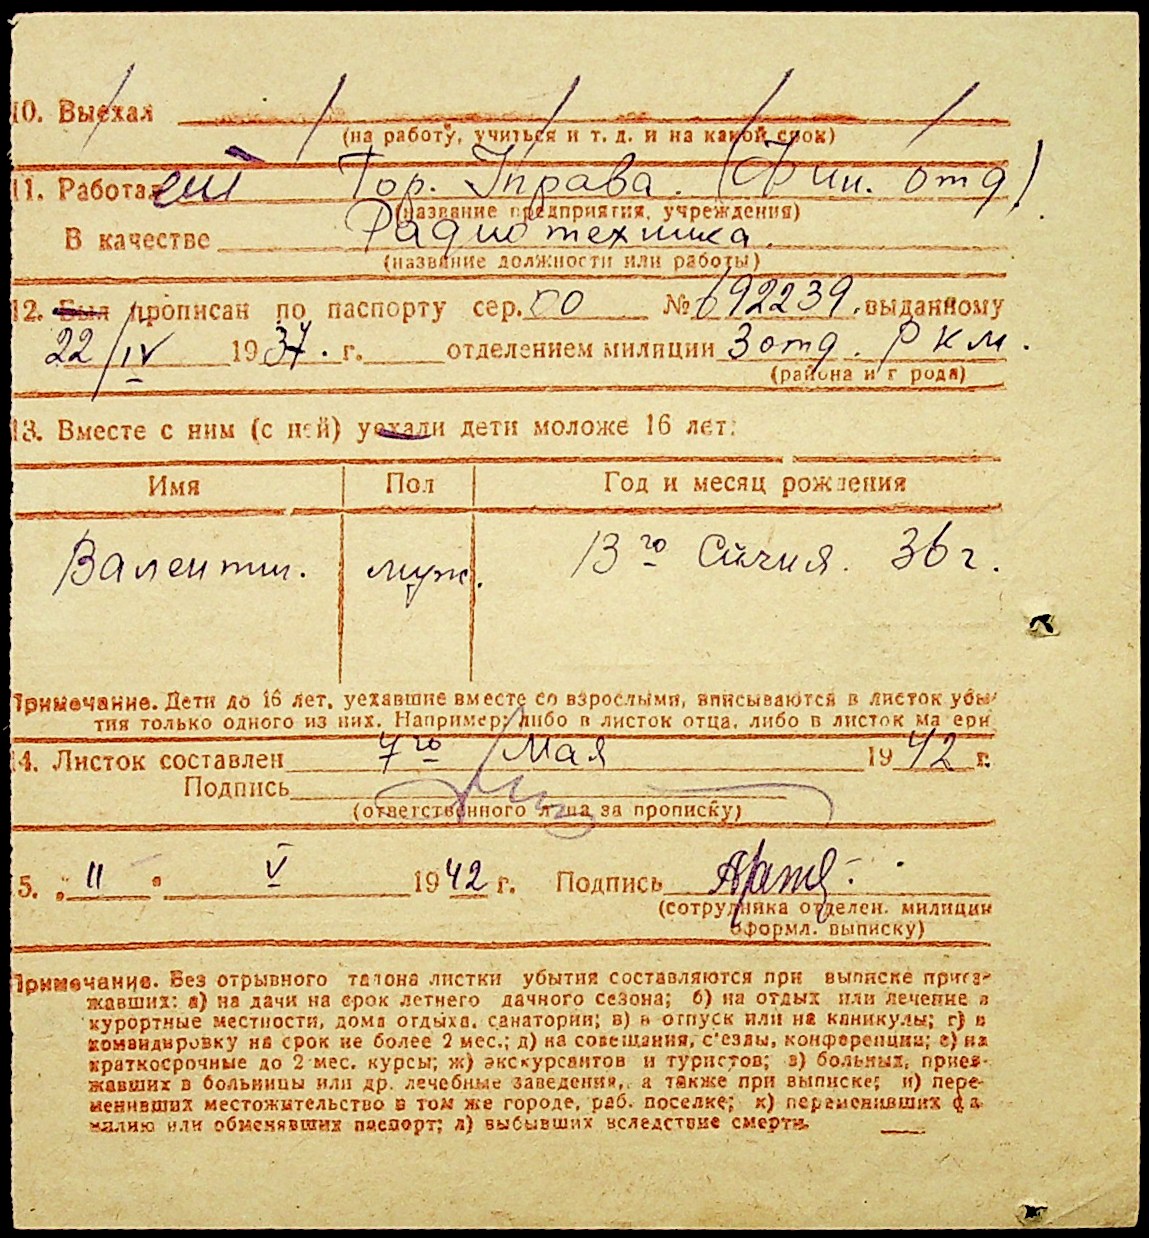 10. Выехал
(на работу, учиться и т. д. и на какой срок)
11. Работает Гор. Управа. (Фин. отд)
(название предприятия, учреждения)
В качестве Радиотехника.
(название должности или работы)
12. Был прописан по паспорту сер. № 692239. выданному
22/IV 1937. г. отделением милиции 3 отд. Р К М.
(района и города)
13. Вместе с ним (с ней) уехали дети моложе 16 лет:
Имя Пол Год и месяц рождения
Валентин. муж. 13го Січня. 36 г.
Примечание. Дети до 16 лет, уехавшие вместе со взрослыми, вписываются в листок убы-
тия только одного из них. Например: либо в листок отца, либо в листок матери
14. Листок составлен 7го Мая 1942 г.
Подпись
(ответственного лица за прописку)
15. „11" V 1942 г. Подпись
(сотрудника отделен. милиции
оформл. выписку)
Примечание. Без отрывного талона листки убытия составляются при выписке приез-
жавших: а) на дачи на срок летнего дачного сезона; б) на отдых или лечение в
курортные местности, дома отдыха, санатории; в) в отпуск или на каникулы; г) в
командировку на срок не более 2 мес.; д) на совещания, с'езды, конференции; е) на
краткосрочные до 2 мес. курсы; ж) экскурсантов и туристов; з) больных, приез-
жавших в больницы или др. лечебные заведения, а также при выписке; и) пере-
менивших местожительство в том же городе, раб. поселке; к) переменивших фа-
милию или обменявших паспорт; л) выбывших вследствие смерти.